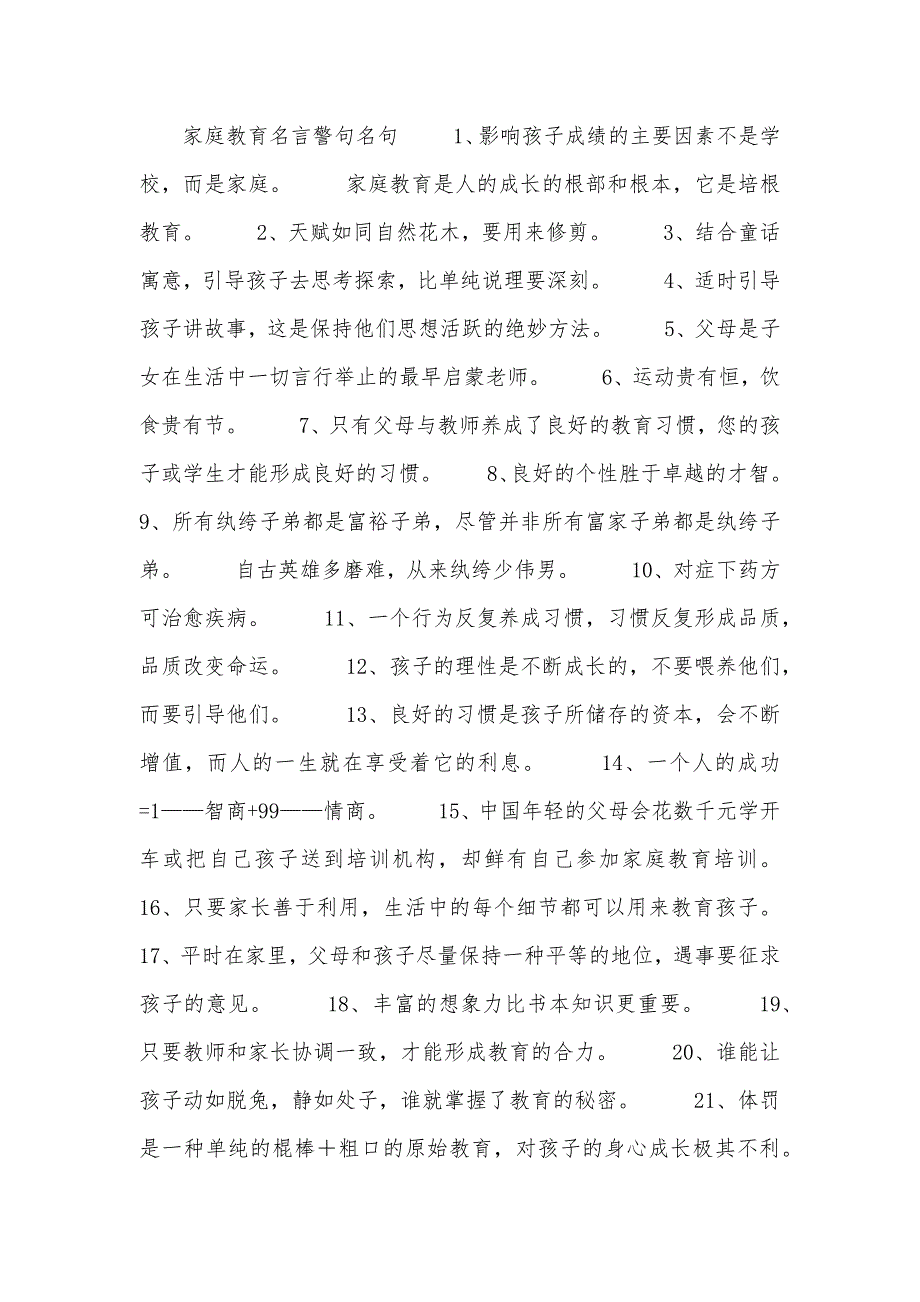 家庭教育名言警句名句 1、影响孩子成绩的主要因素不是学
校，而是家庭。 家庭教育是人的成长的根部和根本，它是培根
教育。 2、天赋如同自然花木，要用来修剪。 3、结合童话
寓意，引导孩子去思考探索，比单纯说理要深刻。 4、适时引导
孩子讲故事，这是保持他们思想活跃的绝妙方法。 5、父母是子
女在生活中一切言行举止的最早启蒙老师。 6、运动贵有恒，饮
食贵有节。 7、只有父母与教师养成了良好的教育习惯，您的孩
子或学生才能形成良好的习惯。 8、良好的个性胜于卓越的才智。
9、所有纨绔子弟都是富裕子弟，尽管并非所有富家子弟都是纨绔子
弟。 自古英雄多磨难，从来纨绔少伟男。 10、对症下药方
可治愈疾病。 11、一个行为反复养成习惯，习惯反复形成品质，
品质改变命运。 12、孩子的理性是不断成长的，不要喂养他们，
而要引导他们。 13、良好的习惯是孩子所储存的资本，会不断
增值，而人的一生就在享受着它的利息。 14、一个人的成功
=1——智商+99——情商。 15、中国年轻的父母会花数千元学开
车或把自己孩子送到培训机构，却鲜有自己参加家庭教育培训。
16、只要家长善于利用，生活中的每个细节都可以用来教育孩子。
17、平时在家里，父母和孩子尽量保持一种平等的地位，遇事要征求
孩子的意见。 18、丰富的想象力比书本知识更重要。 19、
只要教师和家长协调一致，才能形成教育的合力。 20、谁能让
孩子动如脱兔，静如处子，谁就掌握了教育的秘密。 21、体罚
是一种单纯的棍棒＋粗口的原始教育，对孩子的身心成长极其不利。